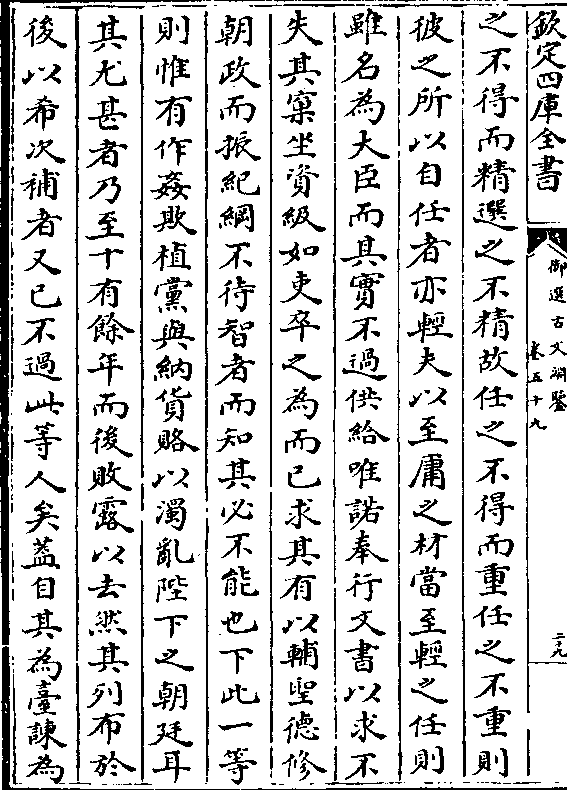 欽定四庫全書
御選古文淵鑒
卷五十九
二十九
之不得而精選之不精故任之不得而重任之不重則
彼之所以自任者亦輕夫以至庸之材當至輕之任則
雖名為大臣而其實不過供給唯諾奉行文書以求不
失其窠坐資級如吏卒之為而已求其有以輔聖德修
朝政而振紀綱不待智者而知其必不能也下此一等
則惟有作姦欺植黨與納貨賂以濁亂陛下之朝廷耳
其尤甚者乃至十有餘年而後敗露以去然其列布於
後以希次補者又已不過此等人矣葢自其為臺諫為